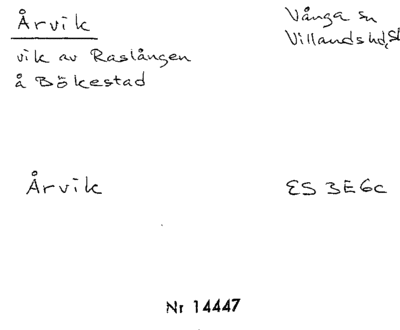 Årvik
Vånga sn
vik av Raslången
Villandshd, Sk
å Bökestad
Årvik
ES 3E6c
Nr 14447